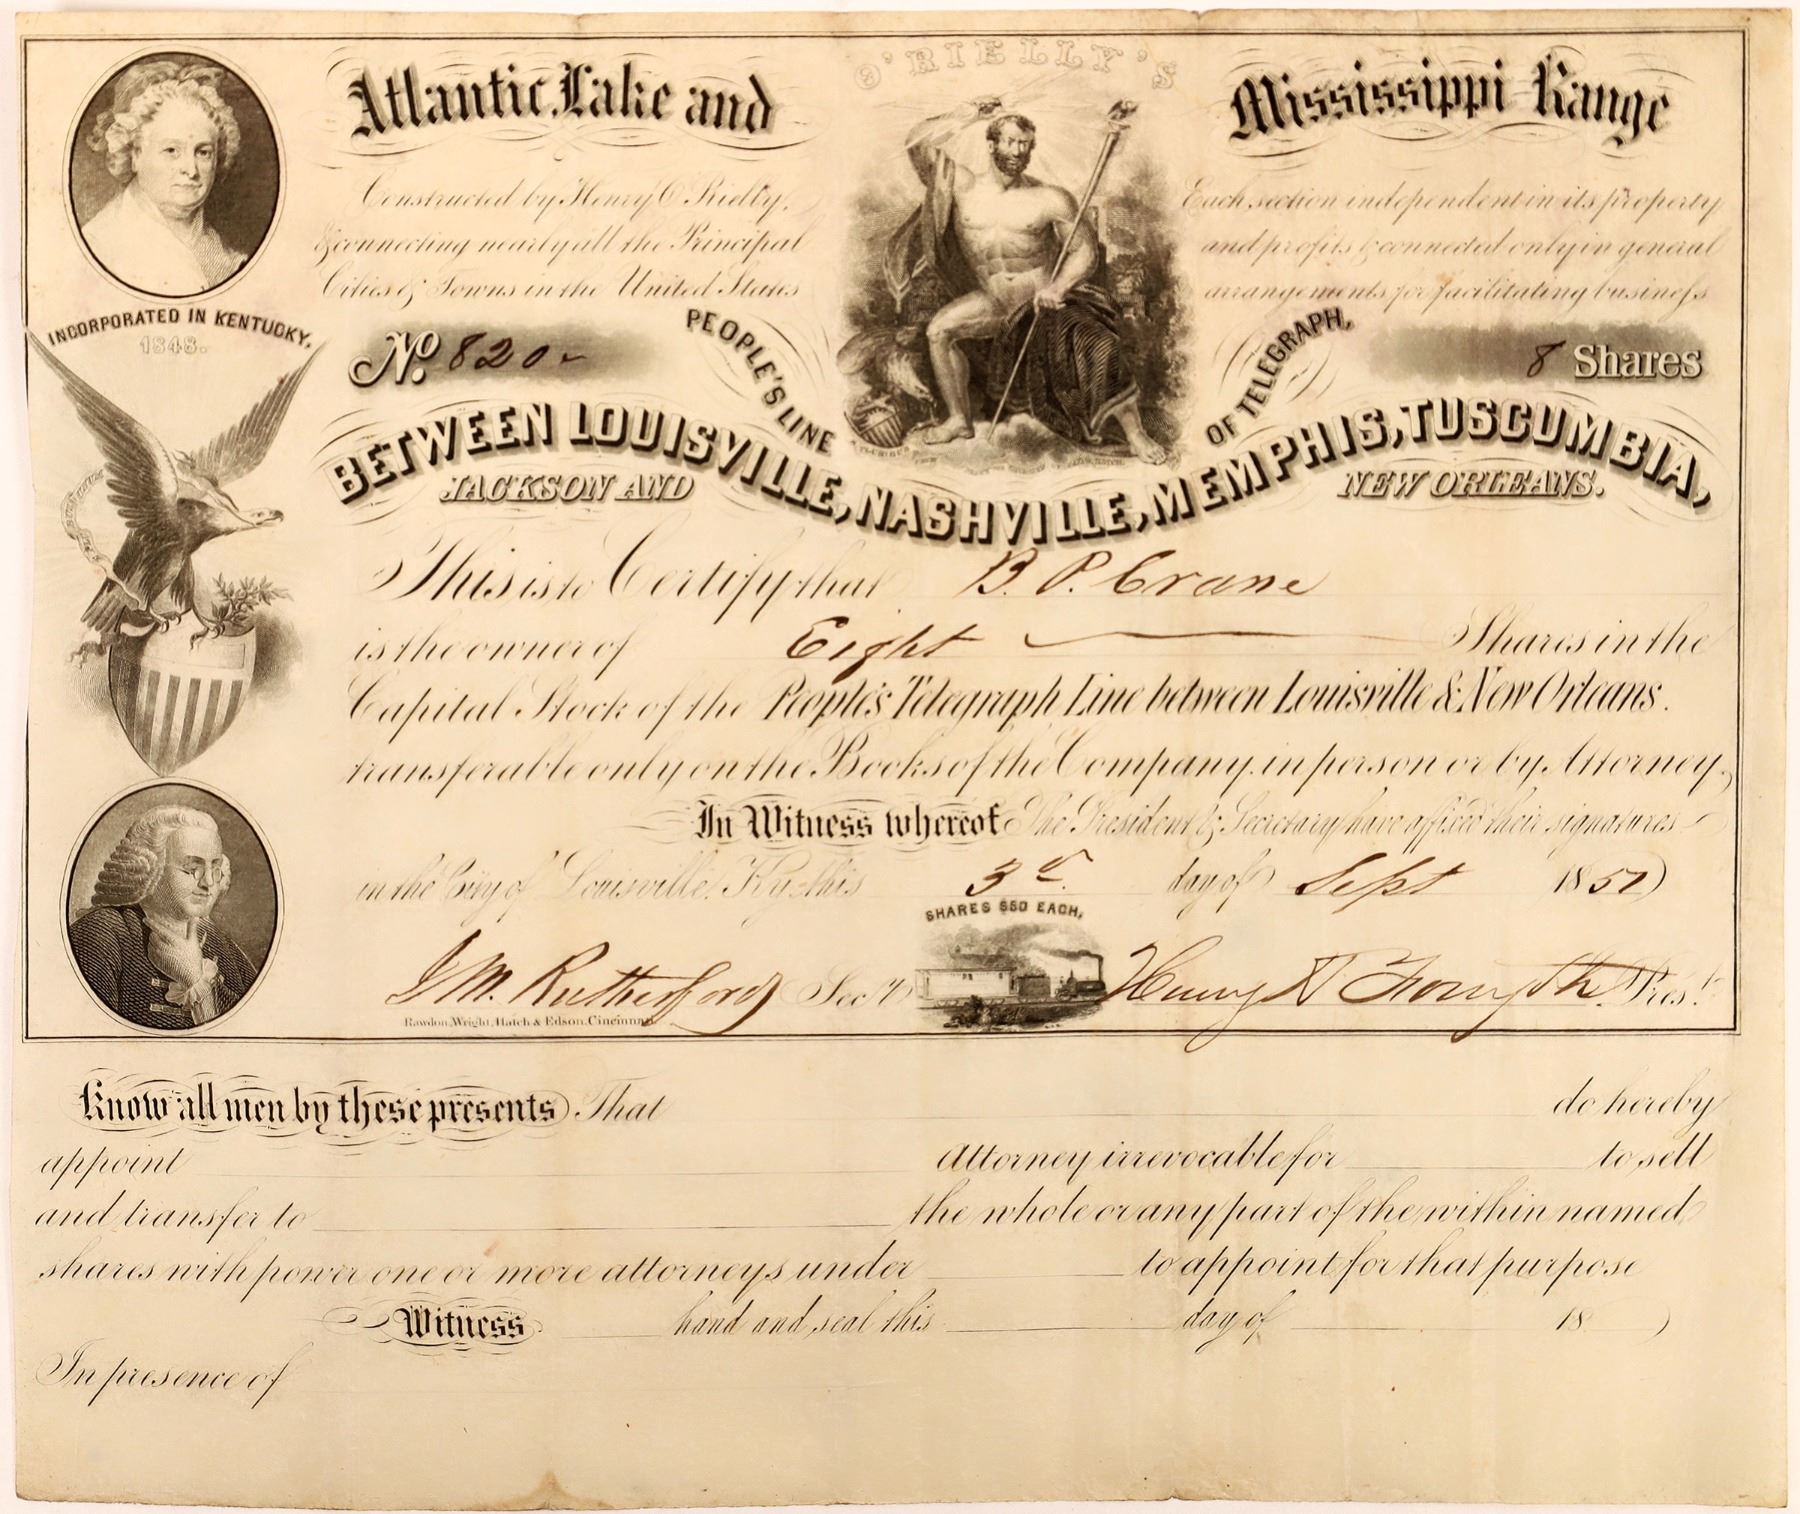 O'RIELLY'S
Atlantic, Lake and Mississippi Range
Constructed by Henry O'Rielly,
& connecting nearly all the Principal
Cities & Towns in the United States
Each section independent in its property
and profits & connected only in general
arrangements for facilitating business
INCORPORATED IN KENTUCKY,
1848.
No. 820
PEOPLE'S LINE OF TELEGRAPH,
8 Shares
BETWEEN LOUISVILLE, NASHVILLE, MEMPHIS, TUSCUMBIA,
JACKSON AND NEW ORLEANS.
This is to Certify that B. P. Crane
is the owner of Eight Shares in the
Capital Stock of the People's Telegraph Line between Louisville & New Orleans.
transferable only on the Books of the Company in person or by Attorney.
In Witness whereof The President & Secretary have affixed their signatures
in the City of Louisville, Ky. this 3d day of Sept 1851
SHARES $50 EACH,
J M. Rutherford Secy
Henry Forsyth Prest.
Rawdon, Wright, Hatch & Edson, Cincinnati
Know all men by these presents That do hereby
appoint Attorney irrevocable for to sell
and transfer to the whole or any part of the within named
shares with power one or more attorneys under to appoint for that purpose
Witness hand and seal this day of 18
In presence of